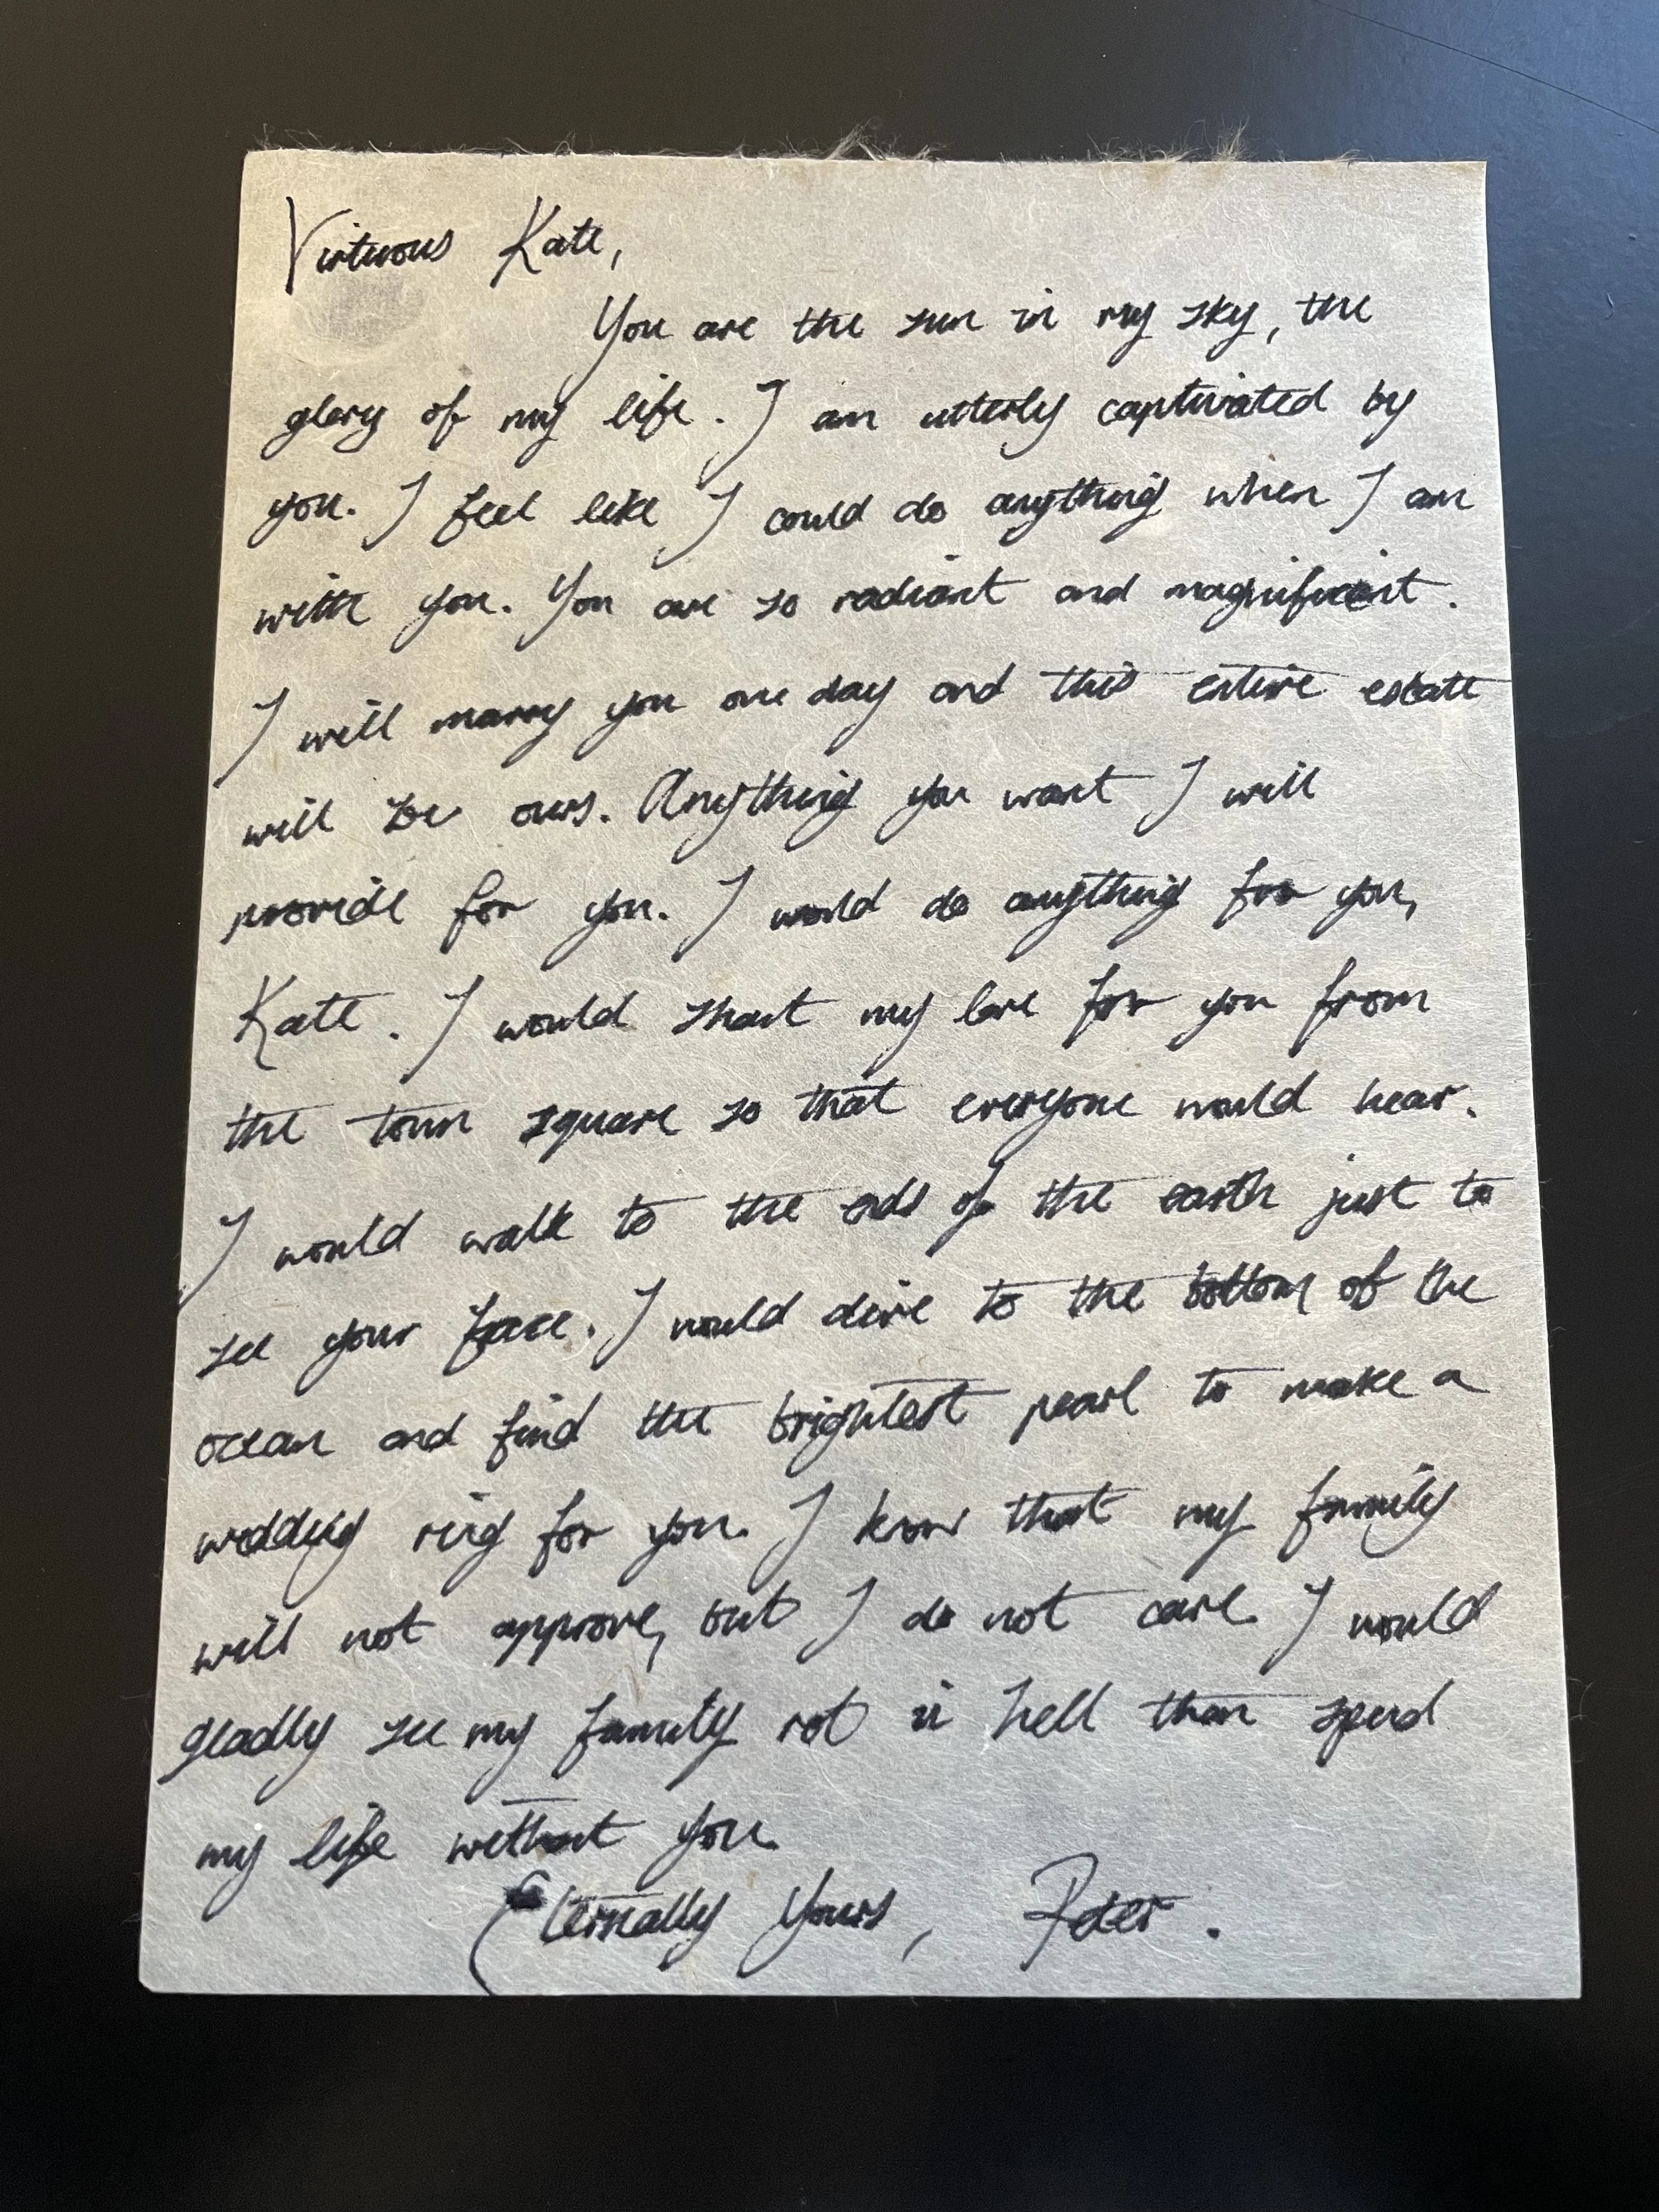 Virtuous Kate,
You are the sun in my sky, the
glory of my life. I am utterly captivated by
you. I feel like I could do anything when I am
with you. You are so radiant and magnificent.
I will marry you one day and this entire estate
will be ours. Anything you want I will
provide for you. I would do anything for you,
Kate. I would shout my love for you from
the town square so that everyone would hear.
I would walk to the ends of the earth just to
see your face. I would dive to the bottom of the
ocean and find the brightest pearl to make a
wedding ring for you. I know that my family
will not approve, but I do not care. I would
gladly see my family rot in hell than spend
my life without you.
Eternally Yours, Peter.